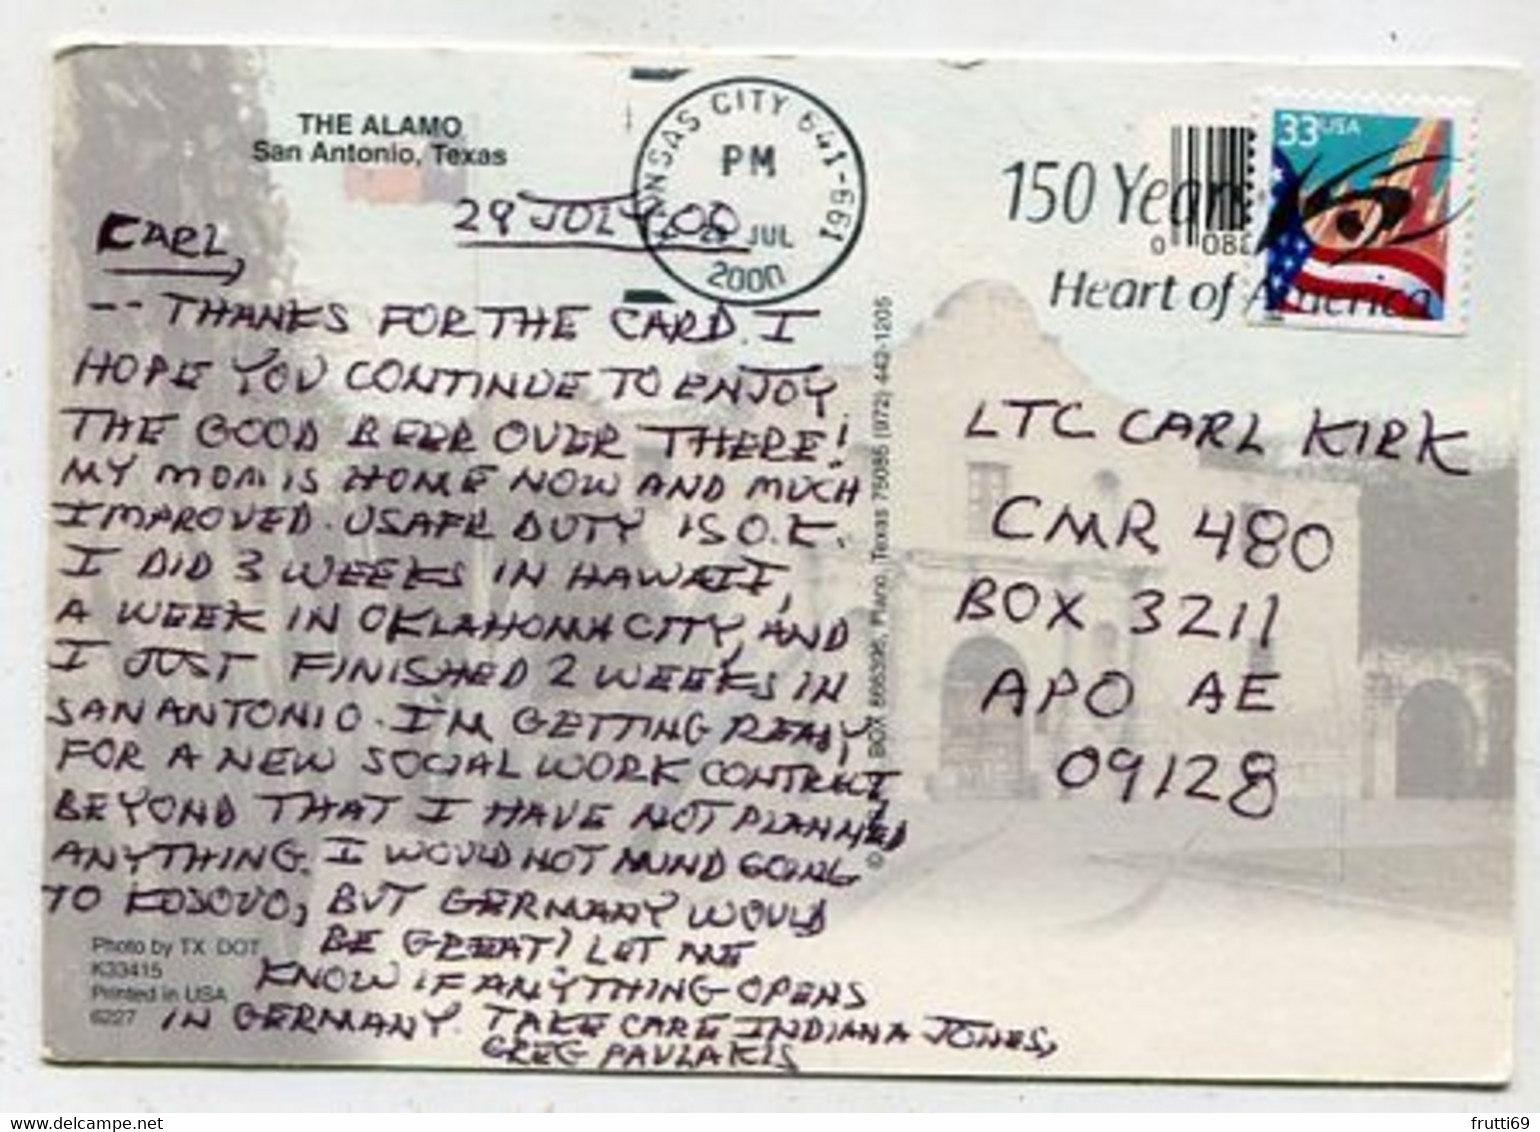 THE ALAMO
San Antonio, Texas
KANSAS CITY 641-661
PM
29 JUL
2000
150 Years
Heart of America
33USA
0 088
29 JULY 00
CARL,
-- THANKS FOR THE CARD. I
HOPE YOU CONTINUE TO ENJOY
THE GOOD BEER OVER THERE!
MY MOM IS HOME NOW AND MUCH
IMPROVED. USAFR DUTY IS O.K.
I DID 3 WEEKS IN HAWAII,
A WEEK IN OKLAHOMA CITY, AND
I JUST FINISHED 2 WEEKS IN
SAN ANTONIO. I'M GETTING READY
FOR A NEW SOCIAL WORK CONTRACT,
BEYOND THAT I HAVE NOT PLANNED
ANYTHING. I WOULD NOT MIND GOING
TO KOSOVO, BUT GERMANY WOULD
BE GREAT! LET ME
KNOW IF ANYTHING OPENS
IN GERMANY. TAKE CARE INDIANA JONES,
GREG PAVLAKIS
Photo by TX DOT
K33415
Printed in USA
6227
BOX 866396, Plano, Texas 75086 (972) 442-1205
LTC CARL KIRK
CMR 480
BOX 3211
APO AE
09128
frutti69